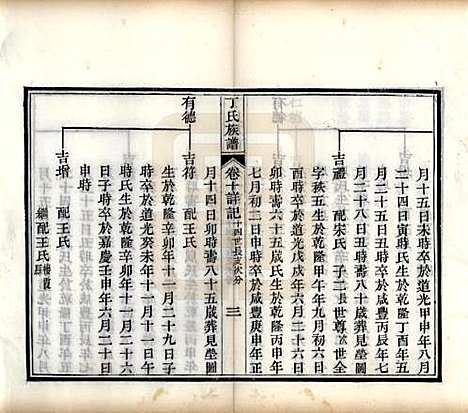 月十五日未時卒於道光甲申年八月
二十四日寅時氏生於乾隆丁酉年五
月二十八日戌時卒於咸豐丙辰年七
有德
吉禮 配宋氏 子二長世尊次世全
字菽五生於乾隆甲午年九月初六日
酉時卒於道光戊戌年六月二十六日
卯時壽六十五歲氏生於乾隆丙申年
七月初二日申時卒於咸豐庚申年正
丁氏族譜
卷十詳記
十四世長支次分
三
月十四日卯時壽八十五歲葬見塋圖
有德
吉符 配王氏
生於乾隆辛卯年十一月二十九日子
時卒於道光癸未年十一月十一日午
時氏生於乾隆辛卯年十月二十四日
申時卒於嘉慶壬申年六月二十日
吉增 配王氏
繼配王氏